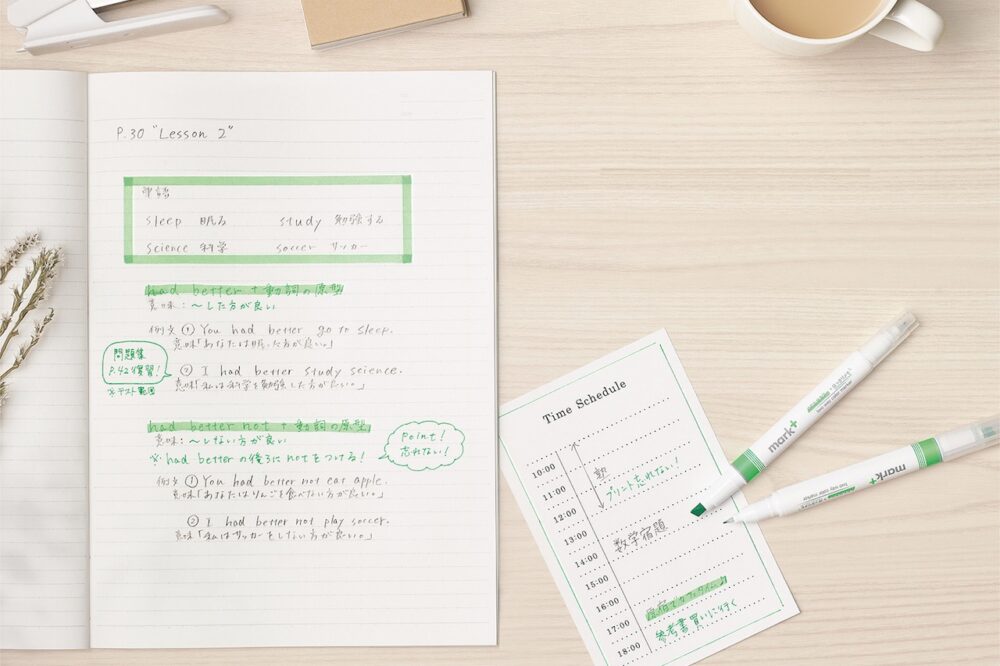 P.30 "Lesson 2"
単語
sleep 眠る study 勉強する
science 科学 soccer サッカー
had better + 動詞の原型
意味：～した方が良い
例文 ① You had better go to sleep.
意味「あなたは眠った方が良い。」
問題集
P.42復習！
※テスト範囲
② I had better study science.
意味「私は科学を勉強した方が良い。」
had better not + 動詞の原型
意味：～しない方が良い
※ had betterの後ろにnotをつける！
Point！
忘れない！
例文 ① You had better not eat apple.
意味「あなたはりんごを食べない方が良い。」
② I had better not play soccer.
意味「私はサッカーをしない方が良い。」
Time Schedule
10:00
11:00
塾
12:00
プリント忘れない！
13:00
14:00
数学宿題
15:00
16:00
17:00
原宿でカフェタイム♪
18:00
参考書買いに行く
mark+
mark+